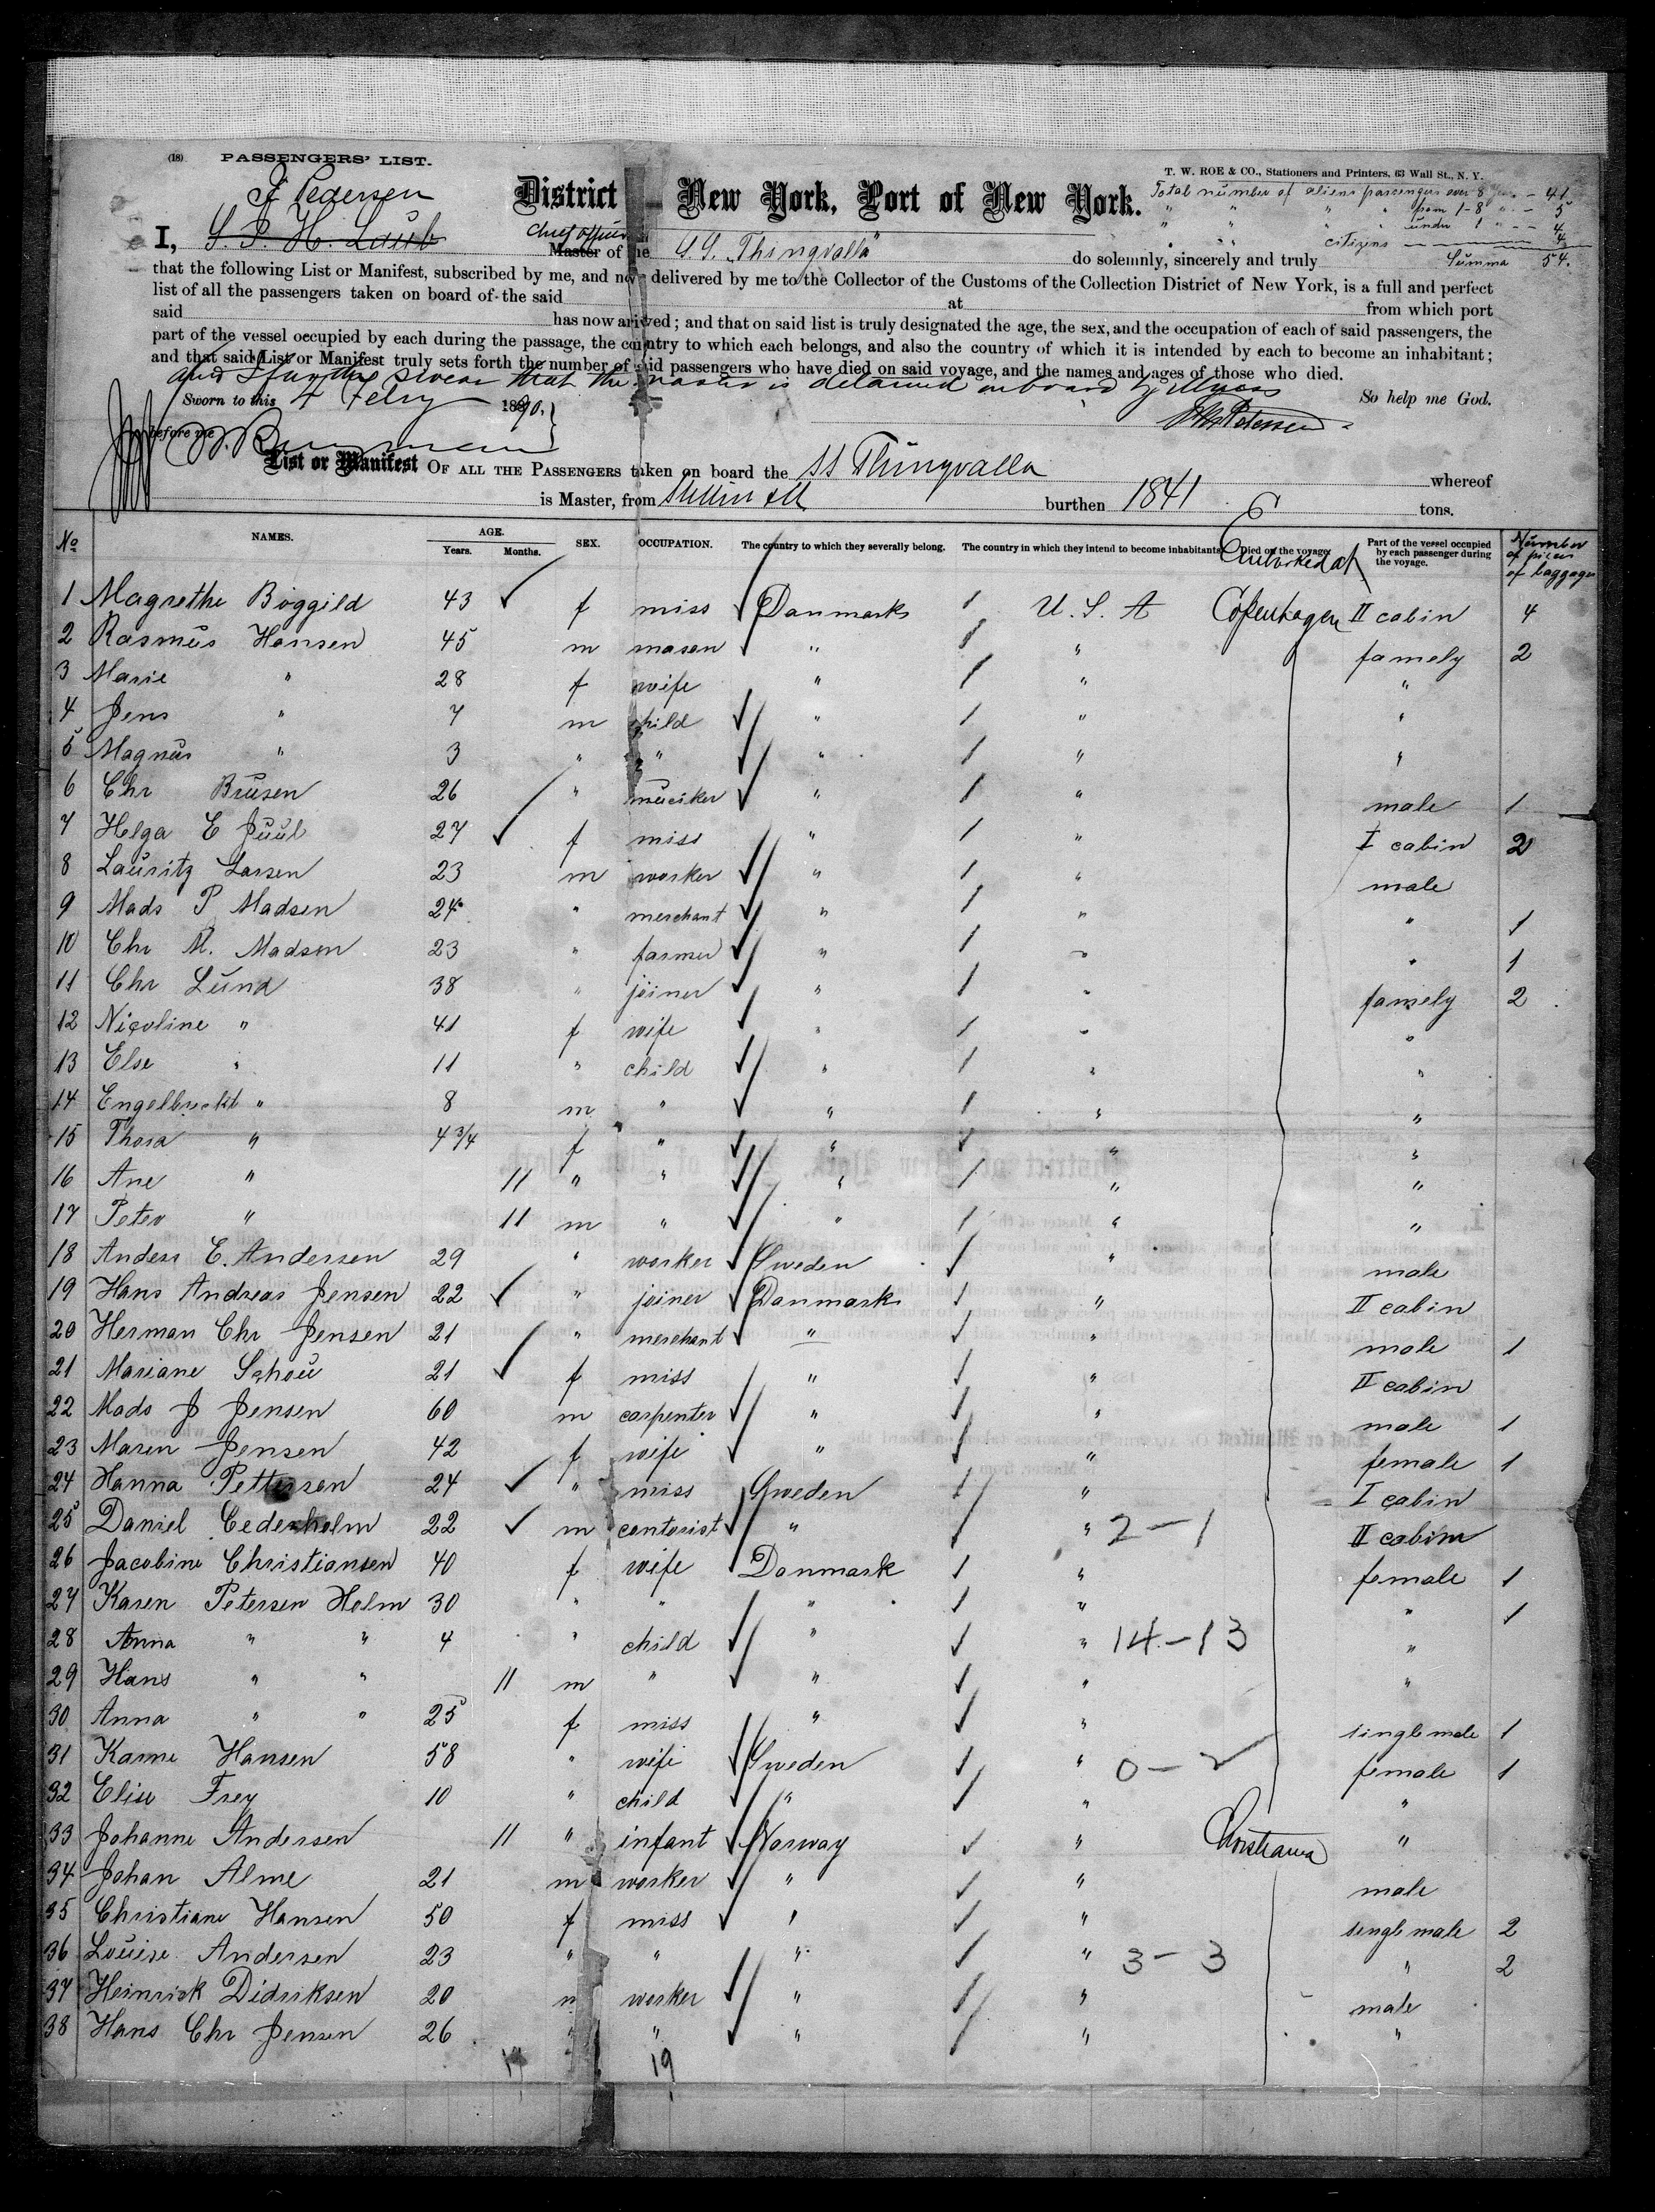 (18) PASSENGERS' LIST.
T. W. ROE & CO., Stationers and Printers, 63 Wall St., N. Y.
J Pedersen
Total number of aliens passengers over 8 - 41
" " " " from 1-8 " - 5
" " " " under 1 " - 4
citizens 4
Summa 54.
District New York, Port of New York.
I, S. P. H. Laub Chief officer Master of the S.S. "Thingvalla" do solemnly, sincerely and truly
that the following List or Manifest, subscribed by me, and now delivered by me to the Collector of the Customs of the Collection District of New York, is a full and perfect
list of all the passengers taken on board of the said at from which port
said has now arrived; and that on said list is truly designated the age, the sex, and the occupation of each of said passengers, the
part of the vessel occupied by each during the passage, the country to which each belongs, and also the country of which it is intended by each to become an inhabitant;
and that said List or Manifest truly sets forth the number of said passengers who have died on said voyage, and the names and ages of those who died.
and I further swear that the master is detained onboard by illness
Sworn to this 4 Feby 1890. So help me God.
before me
List or Manifest OF ALL THE PASSENGERS taken on board the SS Thingvalla whereof
is Master, from Stettin burthen 1841 tons.
No NAMES. AGE. Years. Months. SEX. OCCUPATION. The country to which they severally belong. The country in which they intend to become inhabitants. Died on the voyage. Embarked at Part of the vessel occupied by each passenger during the voyage. Number of pieces of baggage
1 Magrethe Böggild 43 f miss Danmark U. S. A Copenhagen II cabin 4
2 Rasmus Hansen 45 m mason " " famely 2
3 Marie " 28 f wife " " "
4 Jens " 7 m child " " "
5 Magnus " 3 " " " " "
6 Chr Brusen 26 " musiker " " male 1
7 Helga E Juul 27 f miss " " I cabin 2
8 Lauritz Larsen 23 m worker " " male
9 Mads P Madsen 24 " merchant " " " 1
10 Chr M. Madsen 23 " farmer " " " 1
11 Chr Lund 38 " joiner " " famely 2
12 Nicoline " 41 f wife " " "
13 Else " 11 " child " " "
14 Engelbrecht " 8 m " " " "
15 Thora " 4 3/4 f " " " "
16 Ane " 11 " " " " "
17 Peter " 11 m " " " "
18 Anders E. Andersen 29 " worker Sweden " male
19 Hans Andreas Jensen 22 " joiner Danmark " II cabin
20 Herman Chr Jensen 21 " merchant " " male 1
21 Mariane Schou 21 f miss " " II cabin
22 Mads J Jensen 60 m carpenter " " male 1
23 Maren Jensen 42 f wife " " female 1
24 Hanna Pettersen 24 " miss Sweden " I cabin
25 Daniel Cederholm 22 m contorist " " 2-1 II cabin
26 Jacobine Christiansen 40 f wife Danmark " female 1
27 Karen Petersen Holm 30 " " " " " 1
28 Anna " " 4 " child " " 14-13 "
29 Hans " " 11 m " " " "
30 Anna " " 25 f miss " " singlemale 1
31 Karne Hansen 58 " wife Sweden " 0-2 female 1
32 Elise Frey 10 " child " " "
33 Johanne Andersen 11 " infant Norway " Christiania "
34 Johan Alme 21 m worker " " male
35 Christiane Hansen 50 f miss " " single male 2
36 Louise Andersen 23 " " " " 3-3 " 2
37 Heinrick Didriksen 20 m worker " " male
38 Hans Chr Jensen 26 " " " " "
19